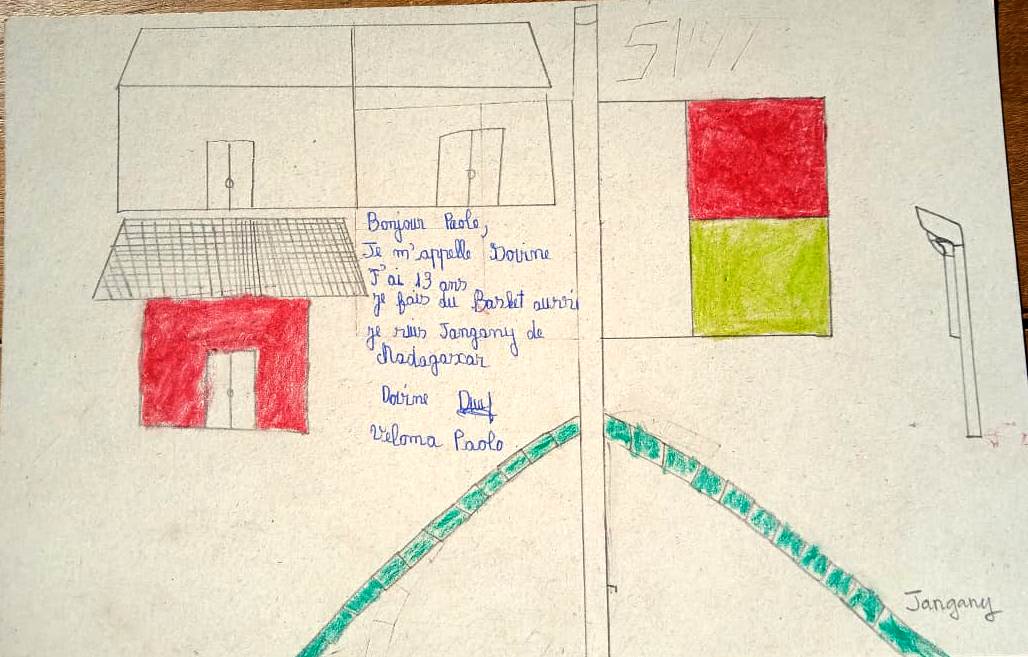 Bonjour Paolo,
Je m'appelle Dovine
J'ai 13 ans
je fais du Basket aussi
je suis Jangany de
Madagascar
Dovine
Veloma Paolo
Jangany